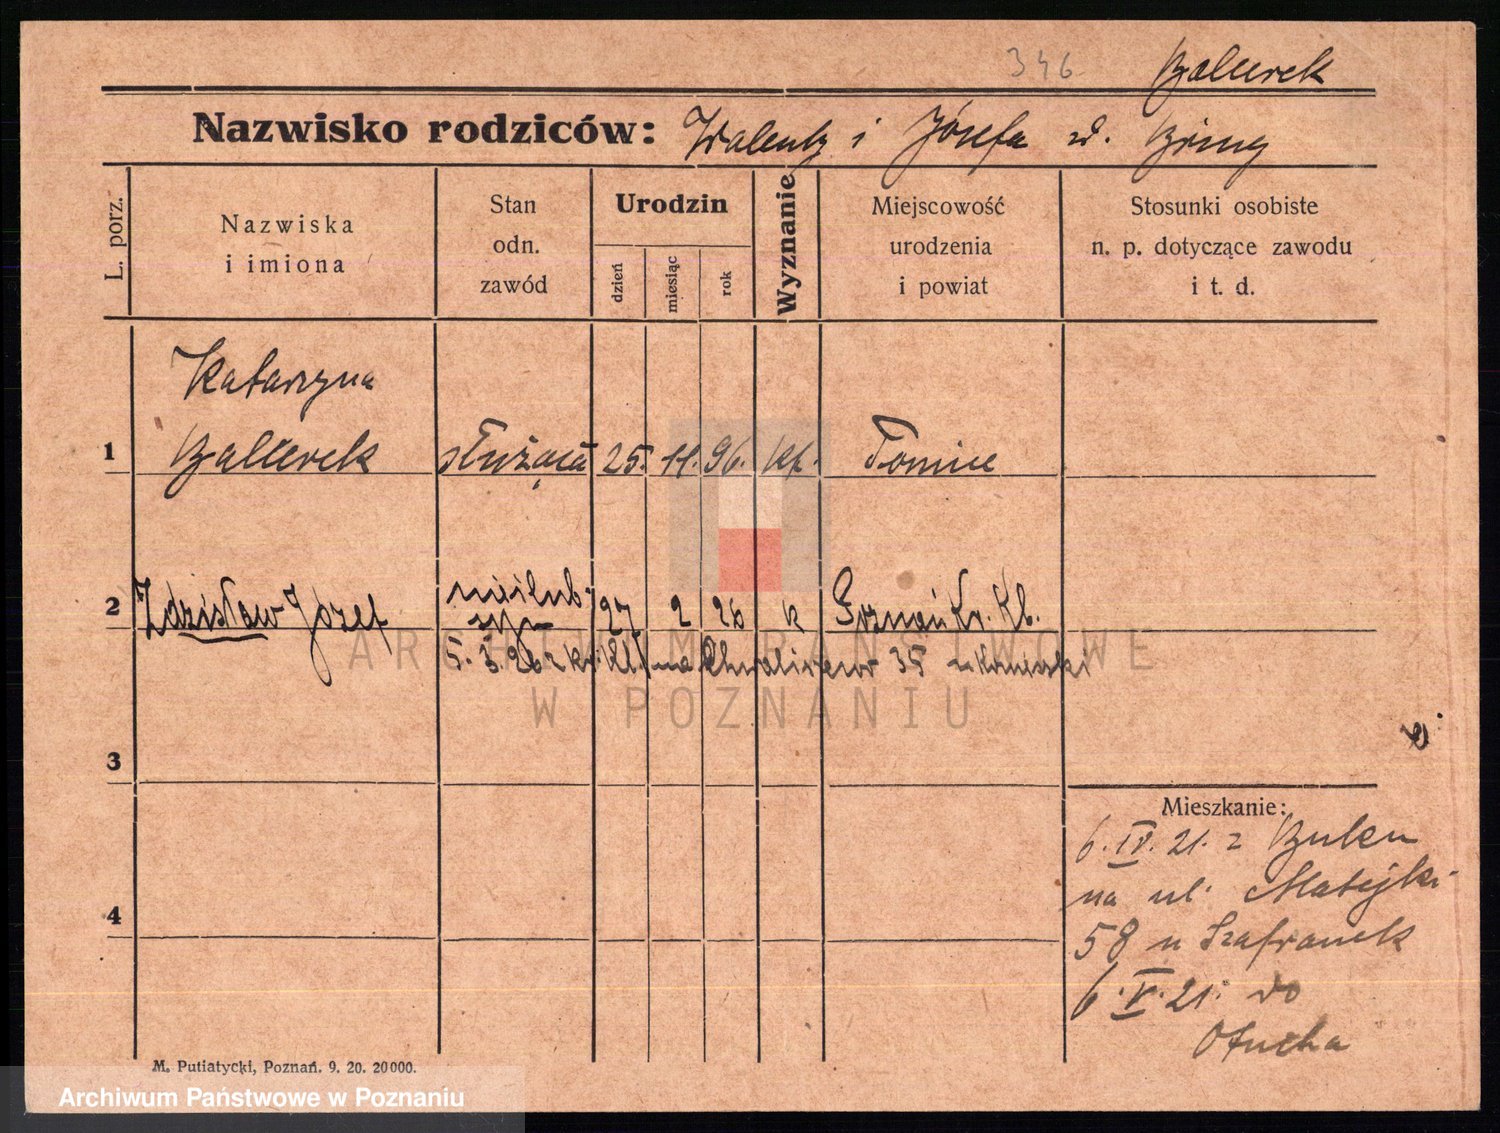 346
Balcerek
Nazwisko rodziców: Walenty i Józefa d. Bring
L. porz.
Nazwiska
i imiona
Stan
odn.
zawód
Urodzin
dzień
miesiąc
rok
Wyznanie
Miejscowość
urodzenia
i powiat
Stosunki osobiste
n. p. dotyczące zawodu
i t. d.
Katarzyna
1 Balcerek służąca 25. 11. 96. kt. Tomice
2 Zdzisław Józef nieślub. syn 27 2 26 k Poznań Kr. Kb.
5. 3. 26 z kr. Kl. na Chwaliszewo 35
3
Mieszkanie:
6. IV. 21. z Buku
na ul. Matejki
58 u Szafranek
6. V. 21. do
Otucha
4
M. Putiatycki, Poznań. 9. 20. 20000.
ARCHIWUM PAŃSTWOWE
W POZNANIU
Archiwum Państwowe w Poznaniu